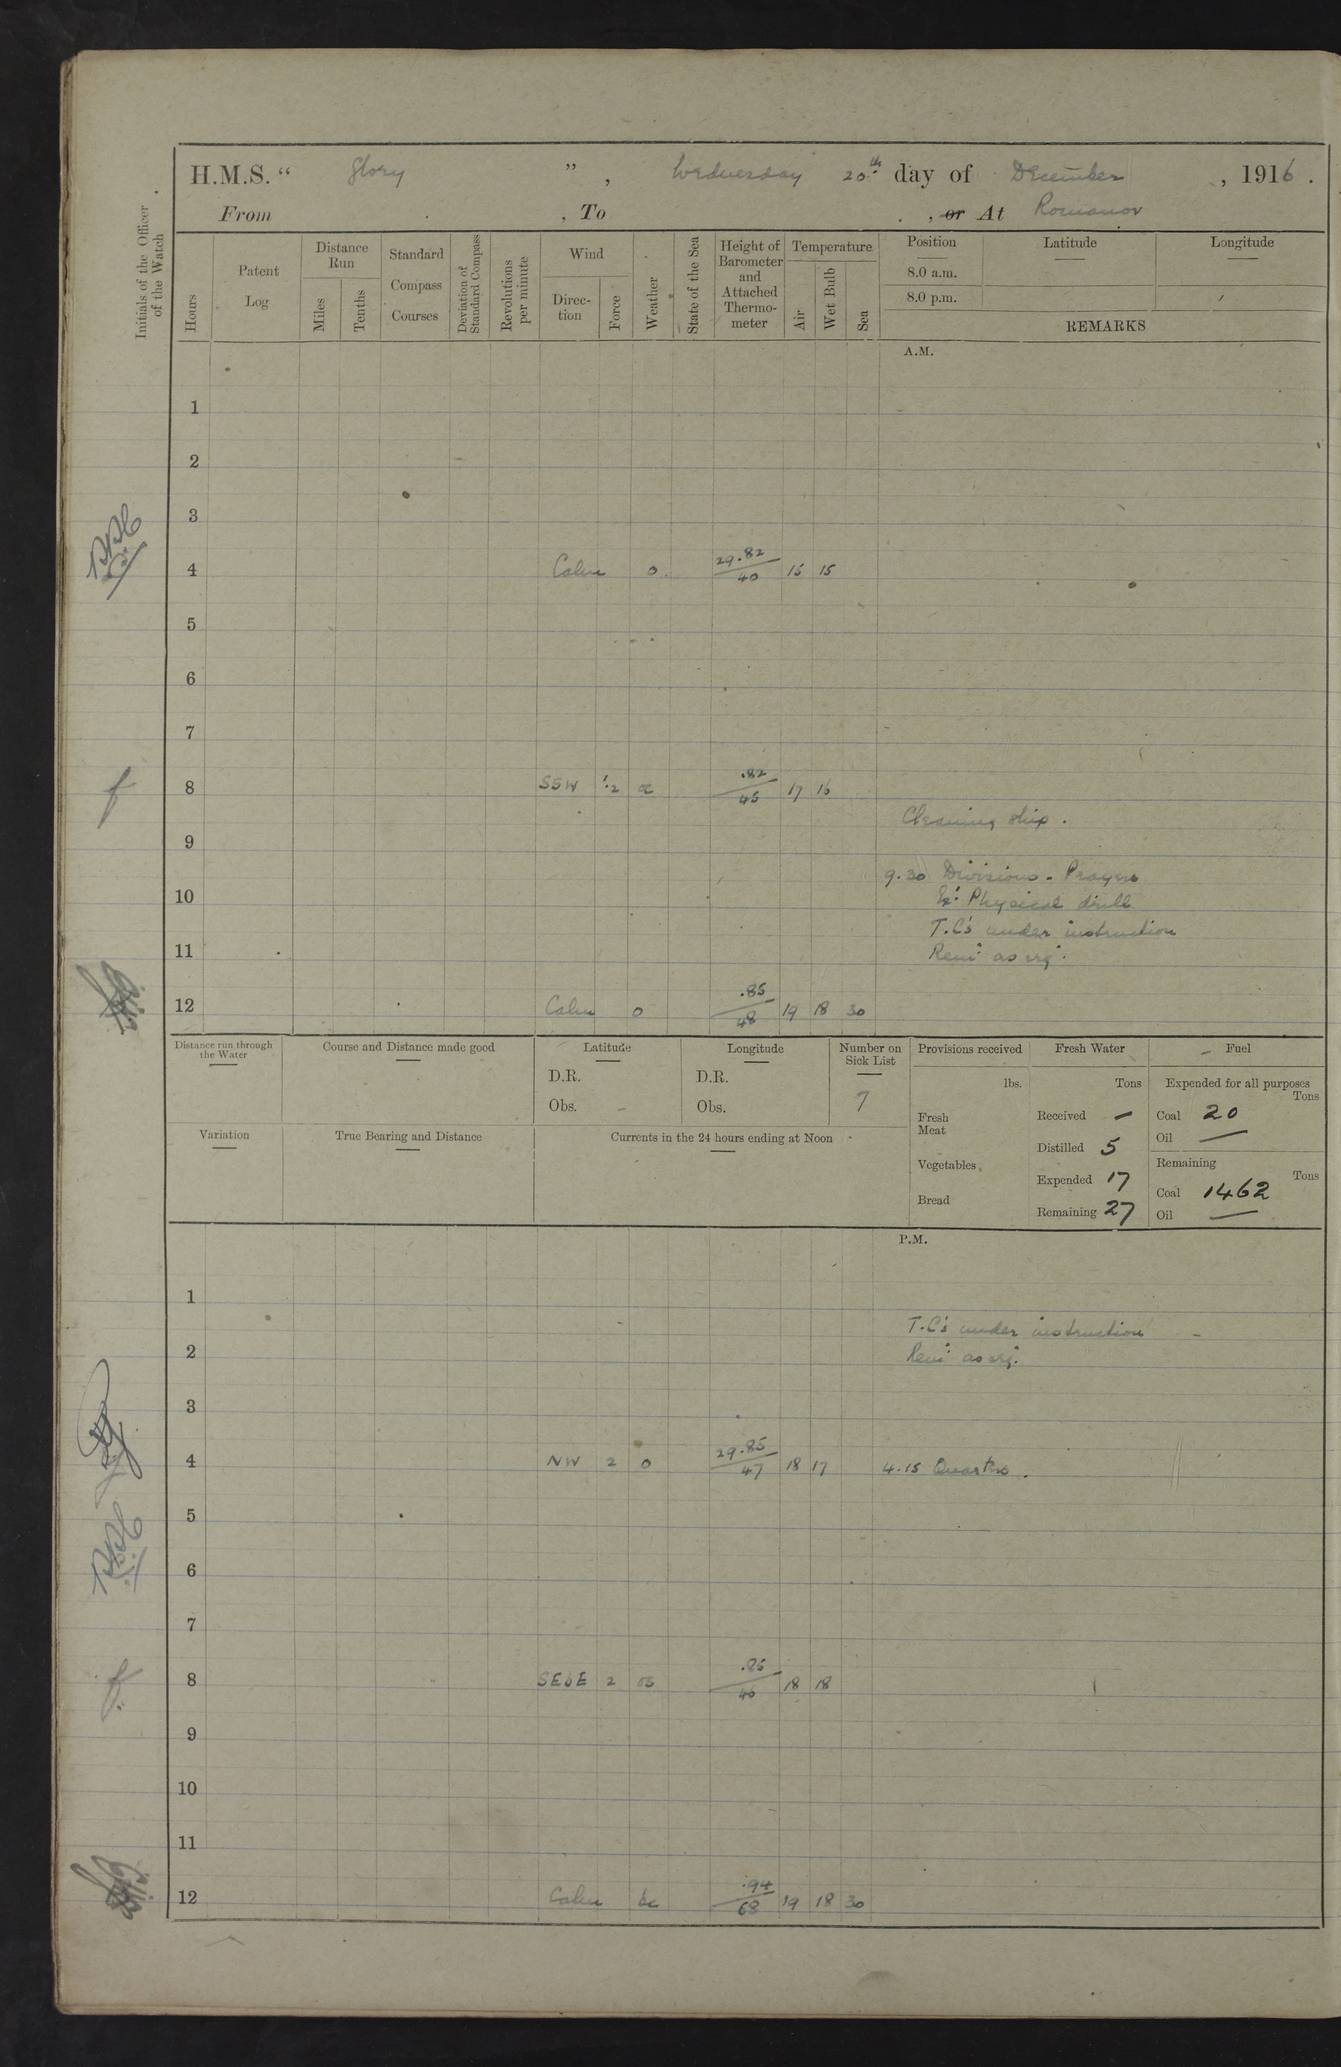 H.M.S. “ Glory ” , Wednesday 20th day of December , 1916 .
From , To , or At Romanov
Initials of the Officer of the Watch
Hours
Patent Log
Distance Run
Miles
Tenths
Standard Compass Courses
Deviation of Standard Compass
Revolutions per minute
Wind
Direc-tion
Force
Weather
State of the Sea
Height of Barometer and Attached Thermo-meter
Temperature
Air
Wet Bulb
Sea
Position Latitude Longitude
8.0 a.m.
8.0 p.m.
REMARKS
A.M.
1
2
3
4 Calm o 29.82/40 15 15
5
6
7
8 SSW 1.2 oc .82/45 17 16
Cleaning ship .
9
9.30 Divisions - Prayers
10 Ex: Physical drill
T.C's under instruction
11 Rem: as req:
12 Calm o .85/48 19 18 30
Distance run through the Water
Course and Distance made good
Latitude
D.R.
Obs. –
Longitude
D.R.
Obs.
Number on Sick List
7
Provisions received
lbs.
Fresh Meat
Vegetables
Bread
Fresh Water
Tons
Received —
Distilled 5
Expended 17
Remaining 27
Fuel
Expended for all purposes
Tons
Coal 20
Oil —
Remaining
Tons
Coal 1462
Oil —
Variation
True Bearing and Distance
Currents in the 24 hours ending at Noon
P.M.
1
T.C's under instruction
2 Rem: as req:
3
4 NW 2 o 29.85/47 18 17 4.15 Quarters .
5
6
7
8 SEbE 2 18 18
9
10
11
12 Calm bc .94/68 19 18 30